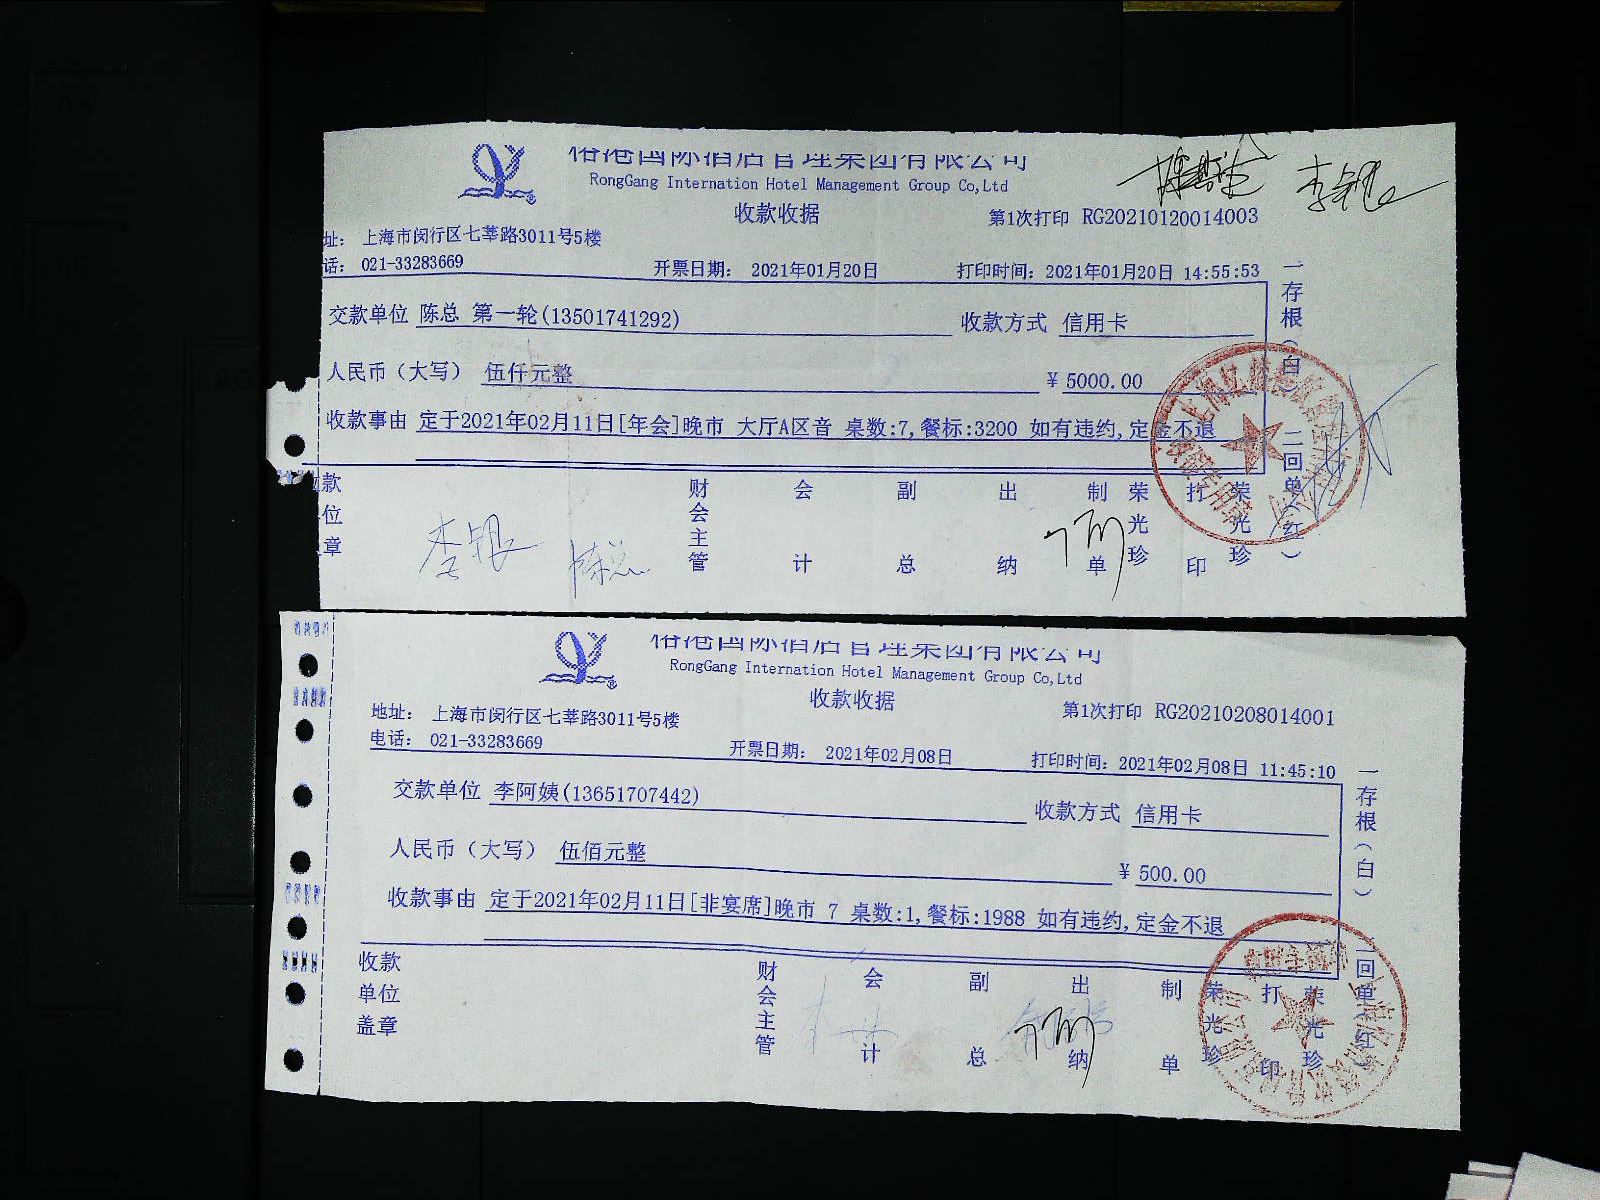 榕港国际酒店管理集团有限公司
RongGang Internation Hotel Management Group Co,Ltd
收款收据
第1次打印 RG20210120014003
址： 上海市闵行区七莘路3011号5楼
话： 021-33283669
开票日期： 2021年01月20日
打印时间：2021年01月20日 14:55:53
交款单位 陈总 第一轮(13501741292)
收款方式 信用卡
人民币（大写） 伍仟元整
¥ 5000.00
收款事由 定于2021年02月11日[年会]晚市 大厅A区音 桌数:7,餐标:3200 如有违约,定金不退
一存根（白） 二回单（红）
款单位章
财会主管
会计
副总
出纳
制单 荣光珍
打印 荣光珍
李银
陈总
榕港国际酒店管理集团有限公司
RongGang Internation Hotel Management Group Co,Ltd
收款收据
第1次打印 RG20210208014001
地址： 上海市闵行区七莘路3011号5楼
电话： 021-33283669
开票日期： 2021年02月08日
打印时间：2021年02月08日 11:45:10
交款单位 李阿姨(13651707442)
收款方式 信用卡
人民币（大写） 伍佰元整
¥ 500.00
收款事由 定于2021年02月11日[非宴席]晚市 7 桌数:1,餐标:1988 如有违约,定金不退
一存根（白） 二回单（红）
收款单位盖章
财会主管
会计
副总
出纳
制单 荣光珍
打印 荣光珍